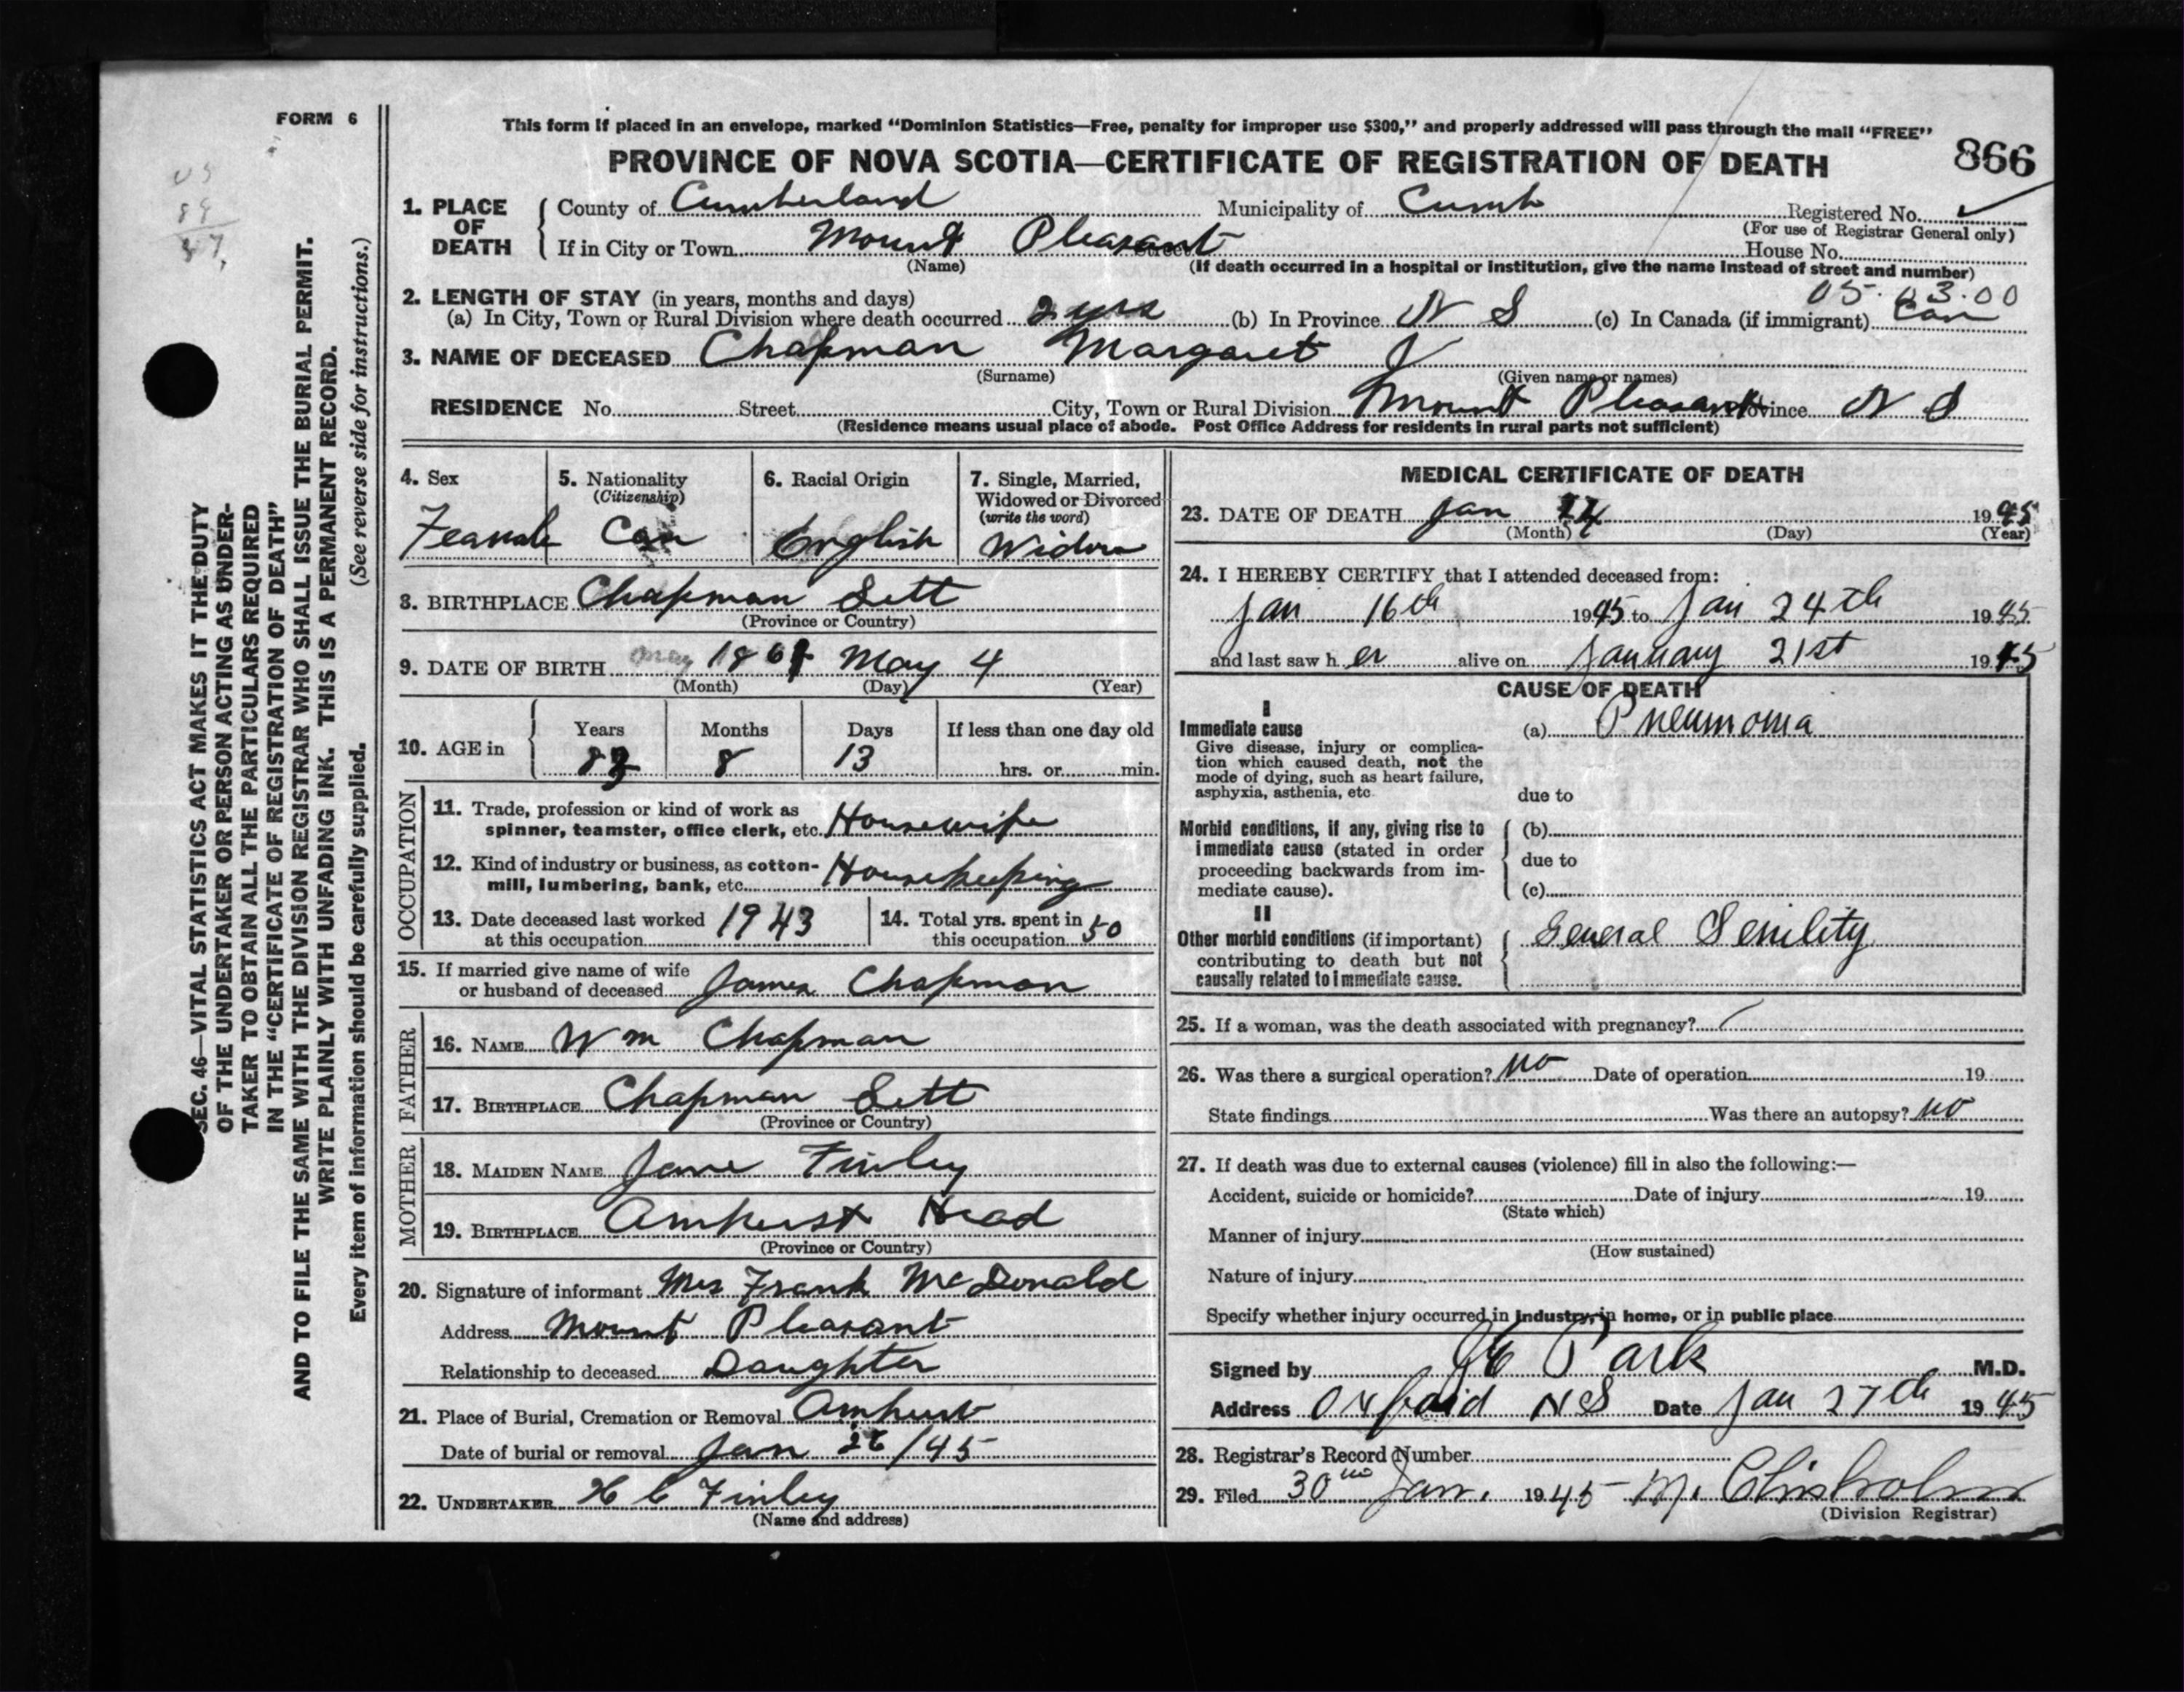 FORM 6
This form if placed in an envelope, marked “Dominion Statistics—Free, penalty for improper use $300,” and properly addressed will pass through the mail “FREE”
PROVINCE OF NOVA SCOTIA—CERTIFICATE OF REGISTRATION OF DEATH
866
1. PLACE OF DEATH
County of Cumberland Municipality of Cumb Registered No. ✓
(For use of Registrar General only)
If in City or Town Mount Pleasant Street House No.
(Name) (If death occurred in a hospital or institution, give the name instead of street and number)
05.03.00
2. LENGTH OF STAY (in years, months and days)
(a) In City, Town or Rural Division where death occurred 2 yrs (b) In Province N S (c) In Canada (if immigrant) Can
3. NAME OF DECEASED Chapman Margaret J
(Surname) (Given name or names)
RESIDENCE No. Street City, Town or Rural Division Mount Pleasant Province N S
(Residence means usual place of abode. Post Office Address for residents in rural parts not sufficient)
4. Sex
Feamale
5. Nationality
(Citizenship)
Can
6. Racial Origin
English
7. Single, Married,
Widowed or Divorced
(write the word)
Widow
8. BIRTHPLACE Chapman Sett
(Province or Country)
9. DATE OF BIRTH May 1861 May 4
(Month) (Day) (Year)
10. AGE in
Years Months Days If less than one day old
8 13 hrs. or min.
OCCUPATION
11. Trade, profession or kind of work as
spinner, teamster, office clerk, etc. Housewife
12. Kind of industry or business, as cotton-
mill, lumbering, bank, etc. Housekeeping
13. Date deceased last worked
at this occupation 1943
14. Total yrs. spent in
this occupation 50
15. If married give name of wife
or husband of deceased James Chapman
FATHER
16. NAME Wm Chapman
17. BIRTHPLACE Chapman Sett
(Province or Country)
MOTHER
18. MAIDEN NAME Jane Finley
19. BIRTHPLACE Amherst Head
(Province or Country)
20. Signature of informant Mrs Frank McDonald
Address Mount Pleasant
Relationship to deceased Daughter
21. Place of Burial, Cremation or Removal Amherst
Date of burial or removal Jan 26/45
22. UNDERTAKER H C Finley
(Name and address)
MEDICAL CERTIFICATE OF DEATH
23. DATE OF DEATH Jan 24 1945
(Month) (Day) (Year)
24. I HEREBY CERTIFY that I attended deceased from:
Jan 16th 1945 to Jan 24th 1945
and last saw her alive on January 21st 1945
CAUSE OF DEATH
I
Immediate cause
Give disease, injury or complica-
tion which caused death, not the
mode of dying, such as heart failure,
asphyxia, asthenia, etc
(a) Pneumonia
due to
Morbid conditions, if any, giving rise to
immediate cause (stated in order
proceeding backwards from im-
mediate cause).
(b)
due to
(c)
II
Other morbid conditions (if important)
contributing to death but not
causally related to immediate cause.
General Senility
25. If a woman, was the death associated with pregnancy?
26. Was there a surgical operation? no Date of operation 19
State findings Was there an autopsy? no
27. If death was due to external causes (violence) fill in also the following:—
Accident, suicide or homicide? Date of injury 19
(State which)
Manner of injury
(How sustained)
Nature of injury
Specify whether injury occurred in industry, in home, or in public place
Signed by Park M.D.
Address Oxford N S Date Jan 27th 1945
28. Registrar's Record Number
29. Filed 30 Jan. 1945 M. Chisholm
(Division Registrar)
SEC. 46—VITAL STATISTICS ACT MAKES IT THE DUTY
OF THE UNDERTAKER OR PERSON ACTING AS UNDER-
TAKER TO OBTAIN ALL THE PARTICULARS REQUIRED
IN THE “CERTIFICATE OF REGISTRATION OF DEATH”
AND TO FILE THE SAME WITH THE DIVISION REGISTRAR WHO SHALL ISSUE THE BURIAL PERMIT.
WRITE PLAINLY WITH UNFADING INK. THIS IS A PERMANENT RECORD.
Every item of information should be carefully supplied. (See reverse side for instructions.)